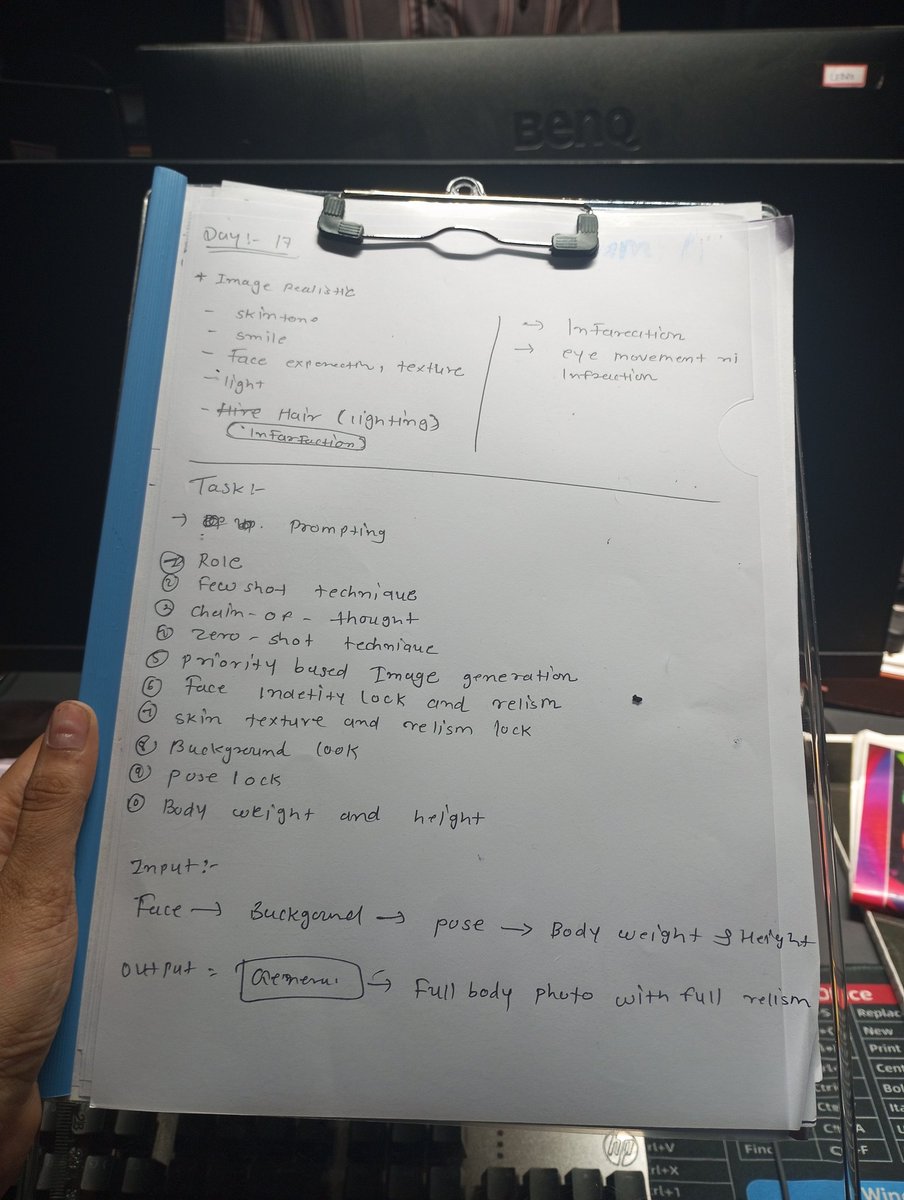 BenQ
Day :- 17
* Image Realistic
- skintone
- smile
- Face expenection, texture
- light
- Hire Hair (lighting)
(Infarfaction)
→ Infarecition
→ eye movement ni
Infraction
Task :-
→ Prompting
① Role
② Few shot technique
③ Chain-of-thought
④ Zero-shot technique
⑤ Priority based Image generation
⑥ Face Indetity lock and relism
⑦ skin texture and relism lock
⑧ Background look
⑨ Pose lock
⑩ Body weight and height
Input :-
Face → Buckgorund → pose → Body weight & Height
Output = → Full body photo with full relism
Office
Replac
New
Print
Cent
Bol
Ita
hp
rl+V
Find
rl+X
Win